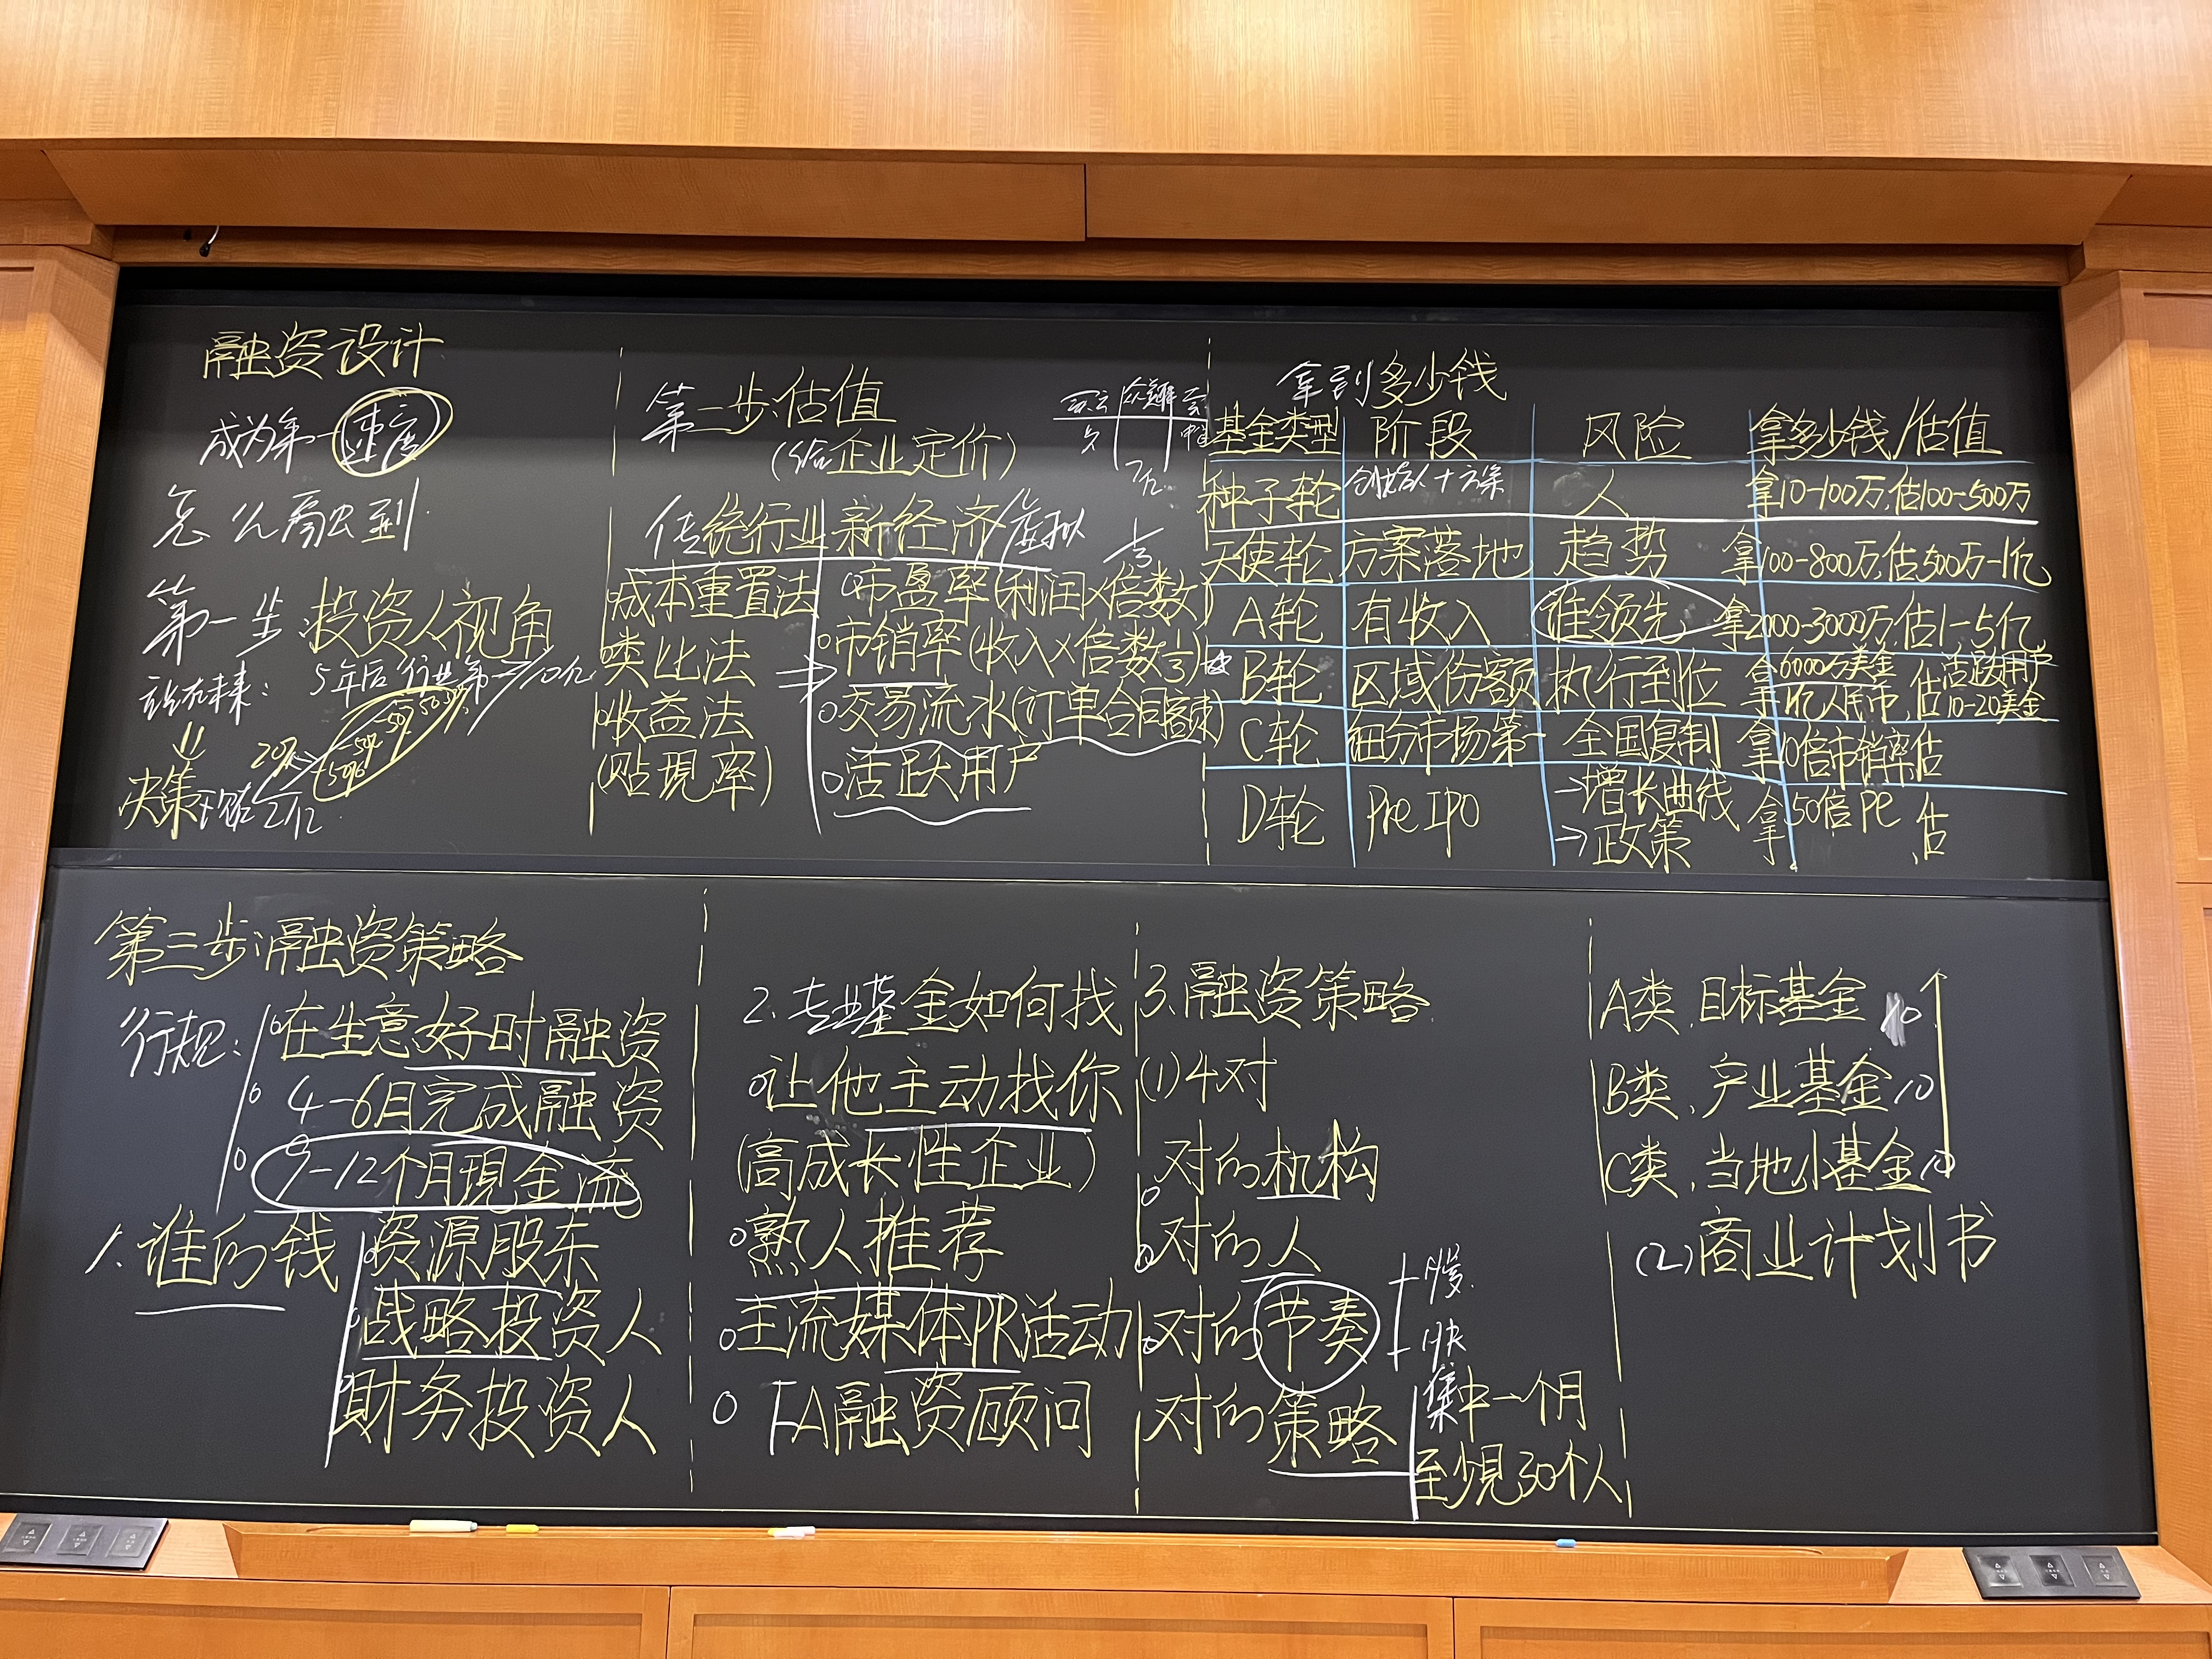 融资设计
成为第一 速度
怎么融到
第一步 投资人视角
5年后 行业第一/10亿
20%
50%
决策 估2亿
第二步:估值
(给企业定价)
传统行业 新经济/虚拟
成本重置法
类比法
收益法
(贴現率)
市盈率(利润×倍数)
市销率(收入×倍数⅓)
交易流水(订单合同额)
活跃用户
拿到多少钱
基金类型 阶段 风险 拿多少钱/估值
种子轮 创始人+方案 人 拿10-100万,估100-500万
天使轮 方案落地 趋势 拿100-800万,估500万-1亿
A轮 有收入 谁领先 拿2000-3000万,估1-5亿
B轮 区域份额 执行到位 拿6000万美金 1亿人民币,估活跃用户 10-20美金
C轮 细分市场第一 全国复制 拿 10倍市销率估
D轮 Pre IPO →增长曲线 拿 50倍PE 估
→政策
第三步:融资策略
行规:
在生意好时融资
4-6月完成融资
9-12个月現金流
1.谁的钱
资源股东
战略投资人
財务投资人
2.专业基金如何找
让他主动找你
(高成长性企业)
熟人推荐
主流媒体PR活动
FA融资顾问
3.融资策略
(1)4对
对的机构
对的人
对的节奏
慢
快
对的策略
集中一个月
至少見30个人
A类.目标基金 10
B类.产业基金 10
C类.当地小基金 10
(2)商业计划书